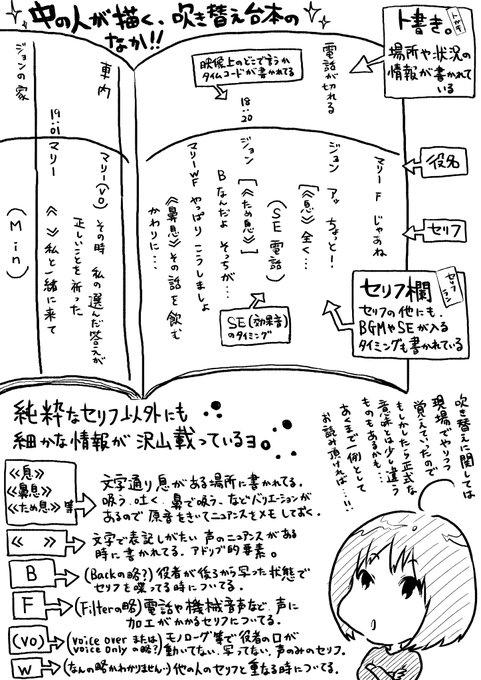 中の人が描く、吹き替え台本の
なか!!
ト書き。
トガキ
場所や状況の
情報が書かれて
いる
役名
セリフ
セリフ欄
セリフラン
セリフの他にも、
BGMやSEが入る
タイミングも書かれている
映像上のどこで言うか
タイムコードが書かれてる
SE(効果音)
のタイミング
電話が切れる
18:20
マリーF じゃあね
ジョン アッ ちょっと!
《息》全く…
(SE 電話)
ジョン 《ため息》
B なんだよ そっちが…
マリーWF やっぱり こうしましょ
《鼻息》その話を飲む
かわりに…
車内
マリー(VO) その時 私の選んだ答えが
正しいことを祈った
19:01
マリー 《 》私と一緒に来て
ジョンの家
(Min)
純粋なセリフ以外にも
細かな情報が沢山載っているヨ。
吹き替えに関しては
現場でやりつつ
覚えていったので
もしかしたら正式な
意味とは少し違う
ものもあるかも…
あくまで一例として
お読み頂ければ…!!
《息》
《鼻息》
《ため息》等
文字通り息がある場所に書かれてる。
吸う、吐く、鼻で吸う、などバリエーションが
あるので原音をきいてニュアンスをメモしておく。
《 》
文字で表記しがたい声のニュアンスがある
時に書かれてる。アドリブ的要素。
B
(Backの略?)役者が後ろから写った状態で
セリフを喋ってる時についてる。
F
(Filterの略)電話や機械音声など、声に
加工がかかるセリフについてる。
(VO)
(voice over または
voice only の略?)モノローグ等で役者の口が
動いてない、写ってない、声のみのセリフ。
W
(なんの略かわかりません…)他の人のセリフと重なる時についてる。